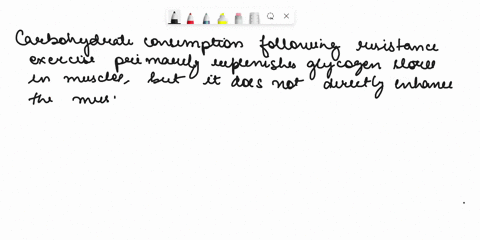 Carbohydrate consumption following resistance
exercise primarily replenishes glycogen stores
in muscles, but it does not directly enhance
the mus